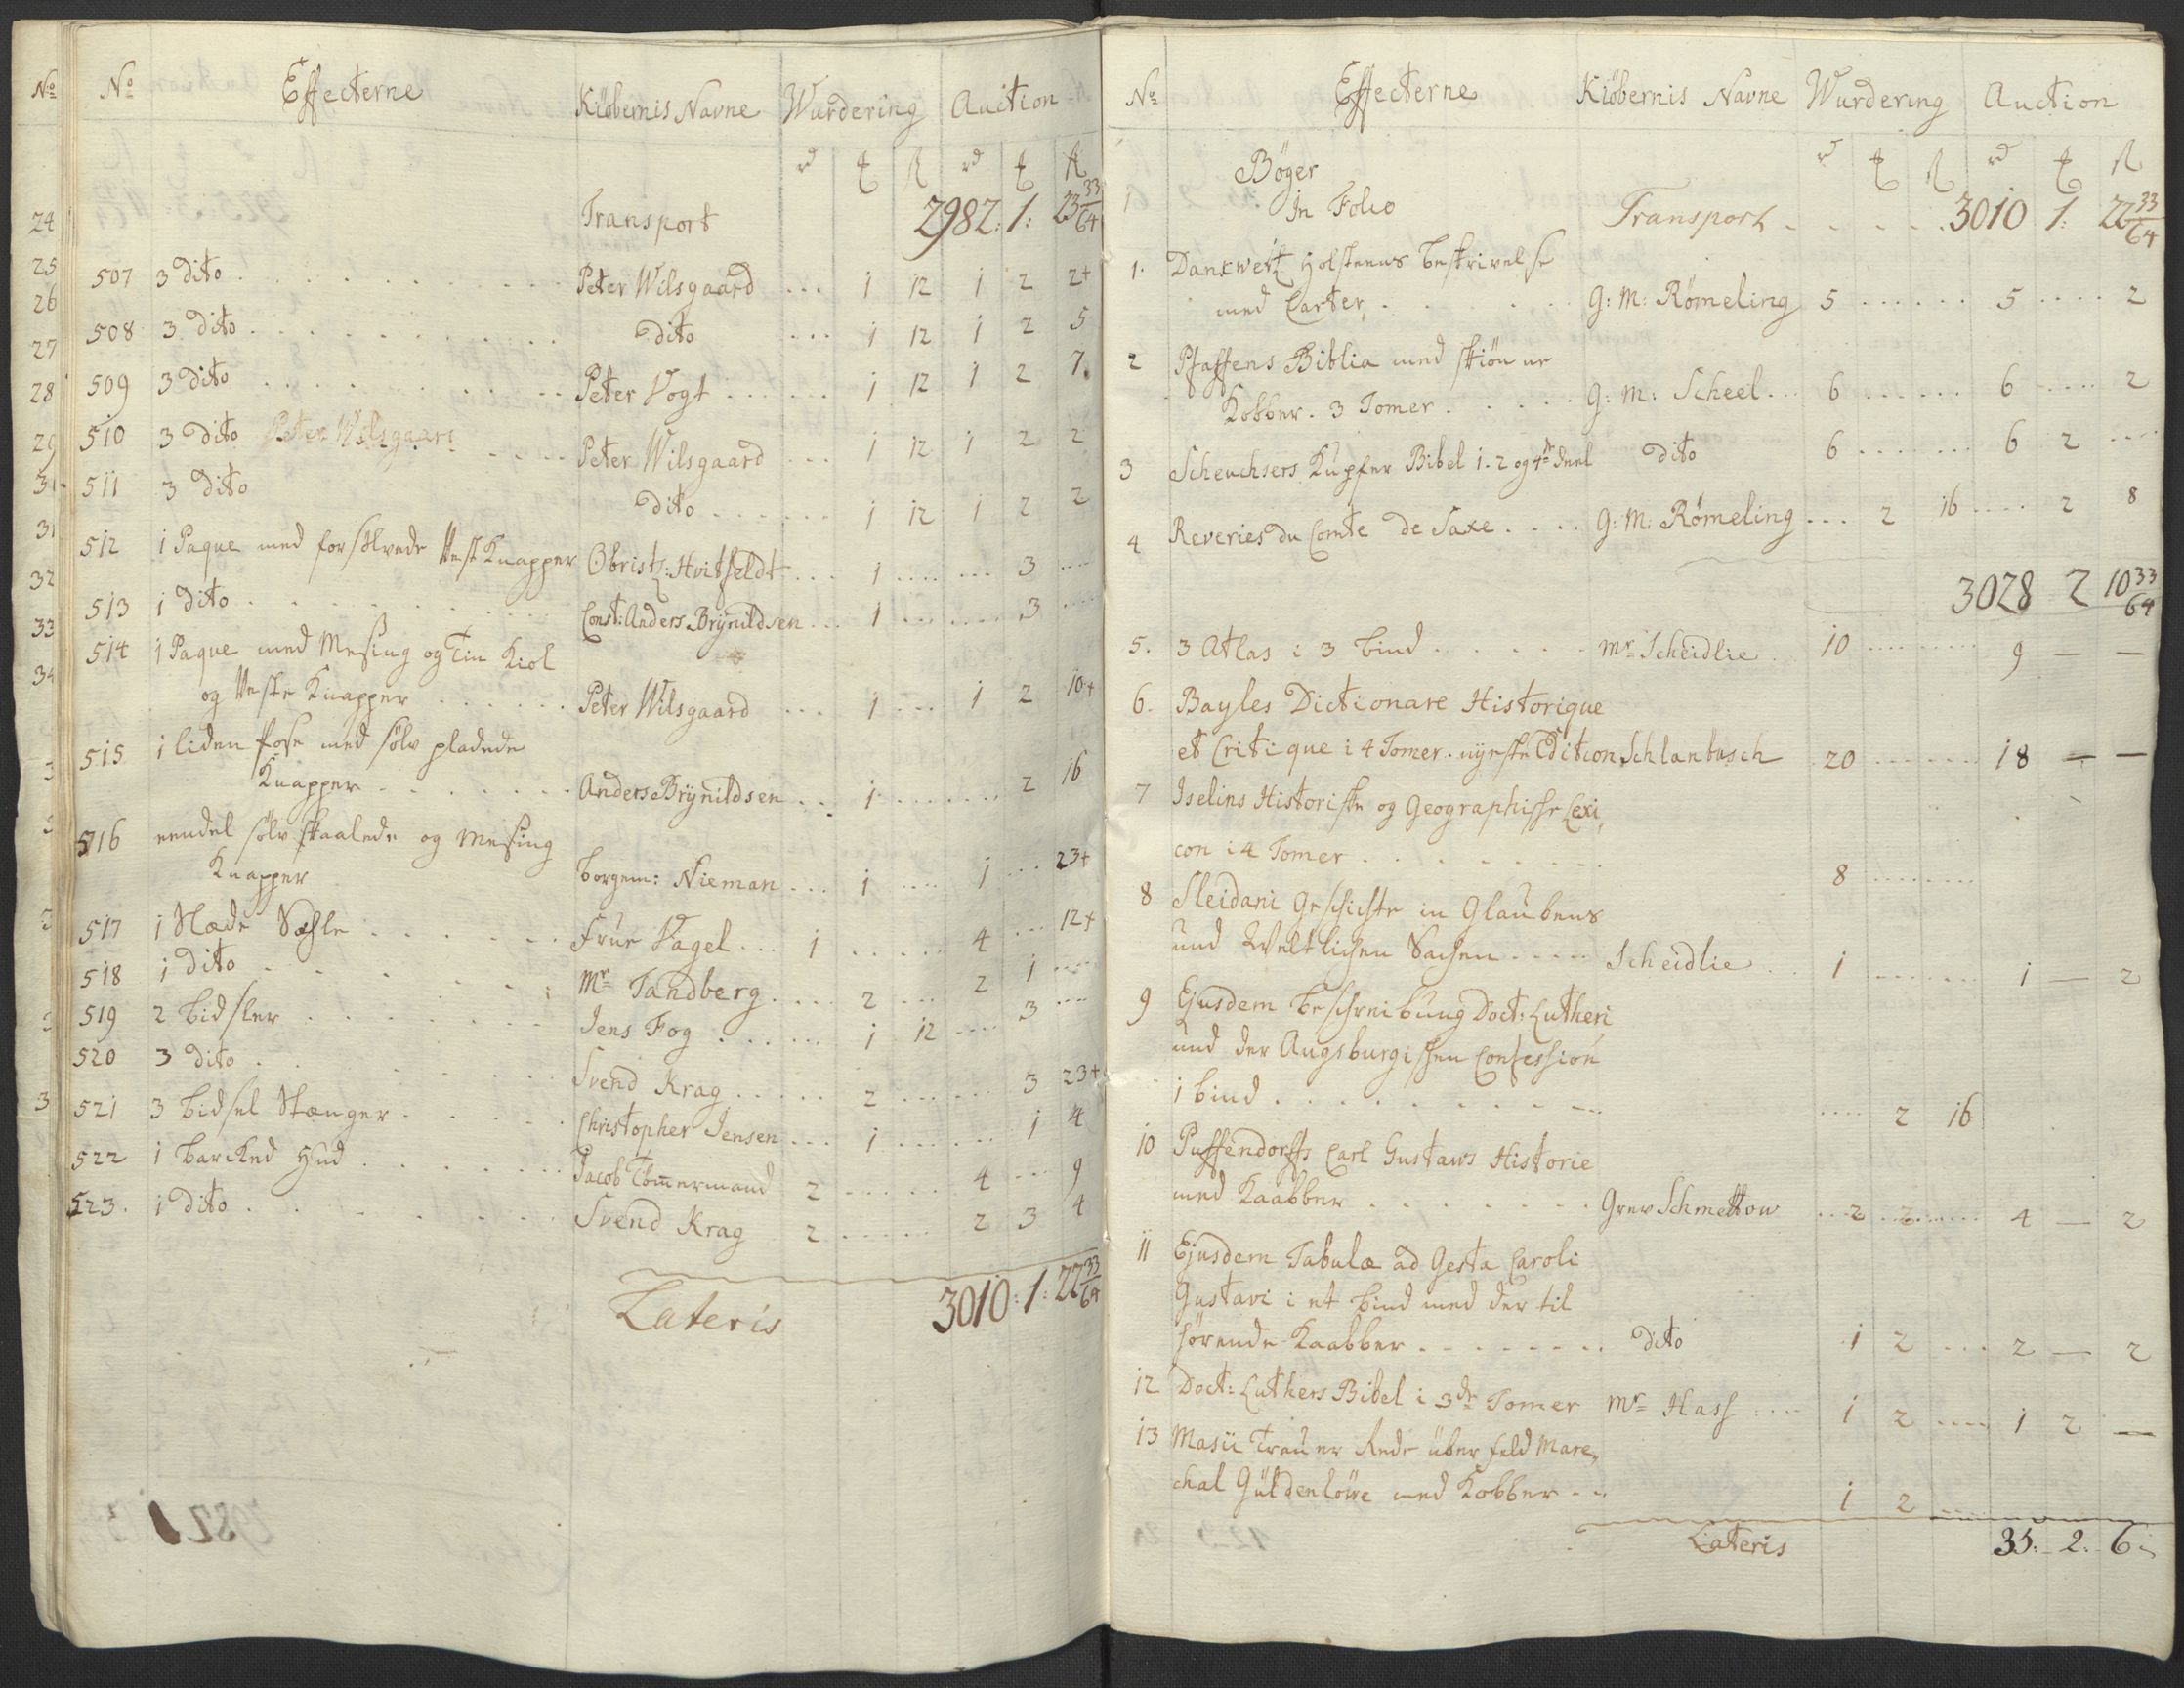 No Effecterne Kiöbernis Navne Wurdering Auction
rd ß rd ß
Transport 2982: 1: 23 33/64
507 3 dito Peter Wilsgaard ... 1 12 1 2 2+
508 3 dito dito ... 1 12 1 2 5
509 3 dito Peter Vogt ... 1 12 1 2 7
510 3 dito Peter Wilsgaard ... 1 12 1 2 2
511 3 dito dito ... 1 12 1 2 2
512 1 Paque med forsölvede Vest Knapper Obristl: Hvitfeldt ... 1 ... 3 ...
513 1 dito Const: Anders Brynildsen ... 1 ... 3 ...
514 1 Paque med Mesing og Tin Kiol
og Veste Knapper Peter Wilsgaard ... 1 ... 1 2 10+
515 1 liden Pose med sölv pladede
Knapper Anders Brÿnildsen ... 1 ... 2 16
516 eendel sölv skaalede og Mesing
Knapper Borgem: Nieman ... 1 ... 1 ... 23+
517 1 Slæde Sæhle Frue Vagel ... 1 ... 4 ... 12+
518 1 dito Mr Tandberg ... 2 ... 2 1 ...
519 2 bidsler Jens Fog ... 1 12 ... 3 ...
520 3 dito Svend Krag ... 2 ... 3 23+
521 3 bidsel Stænger Christopher Jensen ... 1 ... 1 4
522 1 barcked Hud Jacob Tömermand 2 ... 4 ... 9
523. 1 dito Svend Krag 2 ... 2 3 4
Lateris 3010: 1: 22 33/64
No
24
25
26
27
28
29
31
32
33
34
No Effecterne Kiöbernis Navne Wurdering Auction
rd ß rd ß
Bøger
In Folio Transport ... 3010 1: 22 33/64
1. Dankwertz Holsteens beskrivelse
med Carter, G: M: Rømeling 5 ... 5 ... 2
2 Pfaffens Biblia med skiönne
Kobber. 3 Tomer G: M: Scheel ... 6 ... 6 ... 2
3 Scheuchsers Kupfer Bibel 1. 2 og 4de deel dito 6 ... 6 2 ...
4 Reveries du Comte de Saxe G: M: Rømeling ... 2 16 ... 2 8
3028 2 10 33/64
5. 3 Atlas i 3 bind Mr Scheidlie 10 ... 9 — —
6. Bayles Dictionare Historique
et Critique i 4 Tomer. nyeste Edition Schlanbusch 20 ... 18 — —
7 Iselins Historiske og Geographische Lexi,
con i 4 Tomer 8 ...
8 Sleidani Geschichte in Glaubens
und Weltlichen Sachen Scheidlie 1 ... 1 — 2
9 Ejusdem beschreibung Doct: Lutheri
und der Augsburgischen Confession
1 bind ... 2 16
10 Puffendorffs Carl Gustavs Historie
med Kaabber Grev Schmettow ... 2 2 ... 4 — 2
11 Ejusdem Tabulæ ad Gesta Caroli
Gustavi i et bind med der til
hörende Kaabber dito 1 2 ... 2 — 2
12 Doct: Luthers Bibel i 3de Tomer Mr Hass 1 2 ... 1 2 —
13 Masii Trauer Rede über feld Mare,
chal Güldenlöwe med Kobber 1 2 ...
Lateris 35: 2: 6